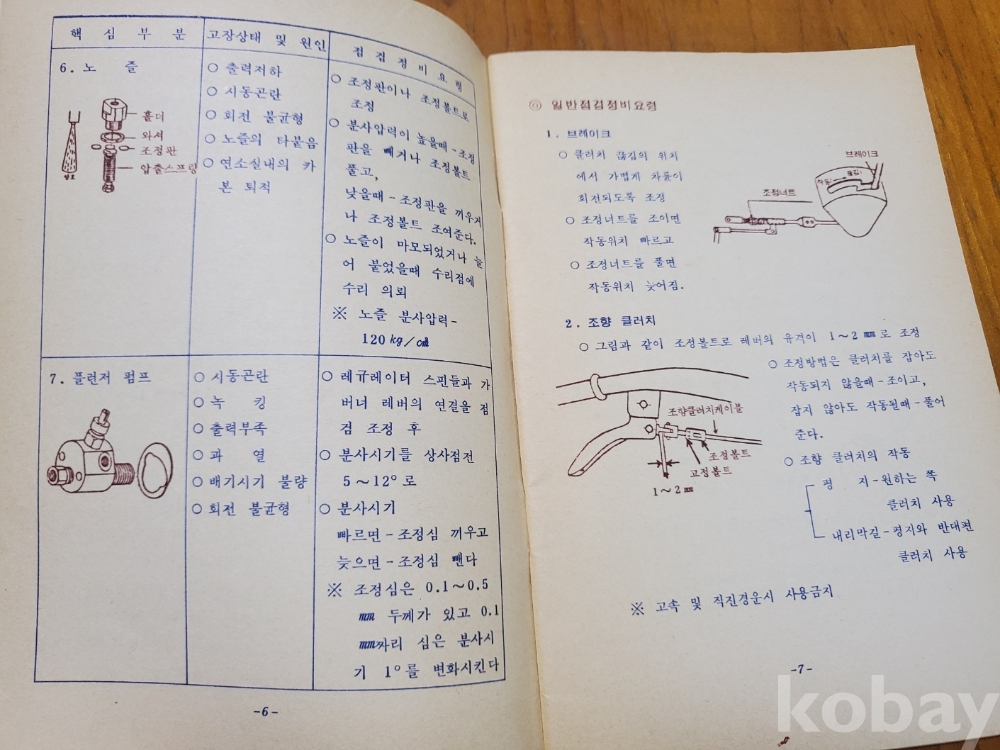 핵 심 부 분
고장상태 및 원인
점 검 정 비 요 령
6. 노 즐
홀더
와셔
조정판
압출스프링
○ 출력저하
○ 시동곤란
○ 회전 불균형
○ 노즐의 타붙음
○ 연소실내의 카
본 퇴적
○ 조정판이나 조정볼트로
조정
○ 분사압력이 높을때-조정
판을 빼거나 조정볼트
풀고,
낮을때-조정판을 끼우거
나 조정볼트 조여준다.
○ 노즐이 마모되었거나 늘
어 붙었을때 수리점에
수리 의뢰
※ 노즐 분사압력-
120㎏/㎠
7. 플런저 펌프
○ 시동곤란
○ 녹 킹
○ 출력부족
○ 과 열
○ 배기시기 불량
○ 회전 불균형
○ 레규레이터 스핀들과 가
버너 레버의 연결을 점
검 조정 후
○ 분사시기를 상사점전
5~12°로
○ 분사시기
빠르면-조정심 끼우고
늦으면-조정심 뺀다
※ 조정심은 0.1~0.5
㎜ 두께가 있고 0.1
㎜짜리 심은 분사시
기 1°를 변화시킨다
-6-
◎ 일반점검정비요령
1. 브레이크
○ 클러치 끊김의 위치
에서 가볍게 차륜이
회전되도록 조정
○ 조정너트를 조이면
작동위치 빠르고
○ 조정너트를 풀면
작동위치 늦어짐.
브레이크
조정너트
2. 조향 클러치
○ 그림과 같이 조정볼트로 레버의 유격이 1~2㎜로 조정
○ 조정방법은 클러치를 잡아도
작동되지 않을때-조이고,
잡지 않아도 작동될때-풀어
준다.
○ 조향 클러치의 작동
평 지-원하는 쪽
클러치 사용
내리막길-평지와 반대편
클러치 사용
조향클러치케이블
조정볼트
고정볼트
1~2㎜
※ 고속 및 직진경운시 사용금지
-7-
kobay